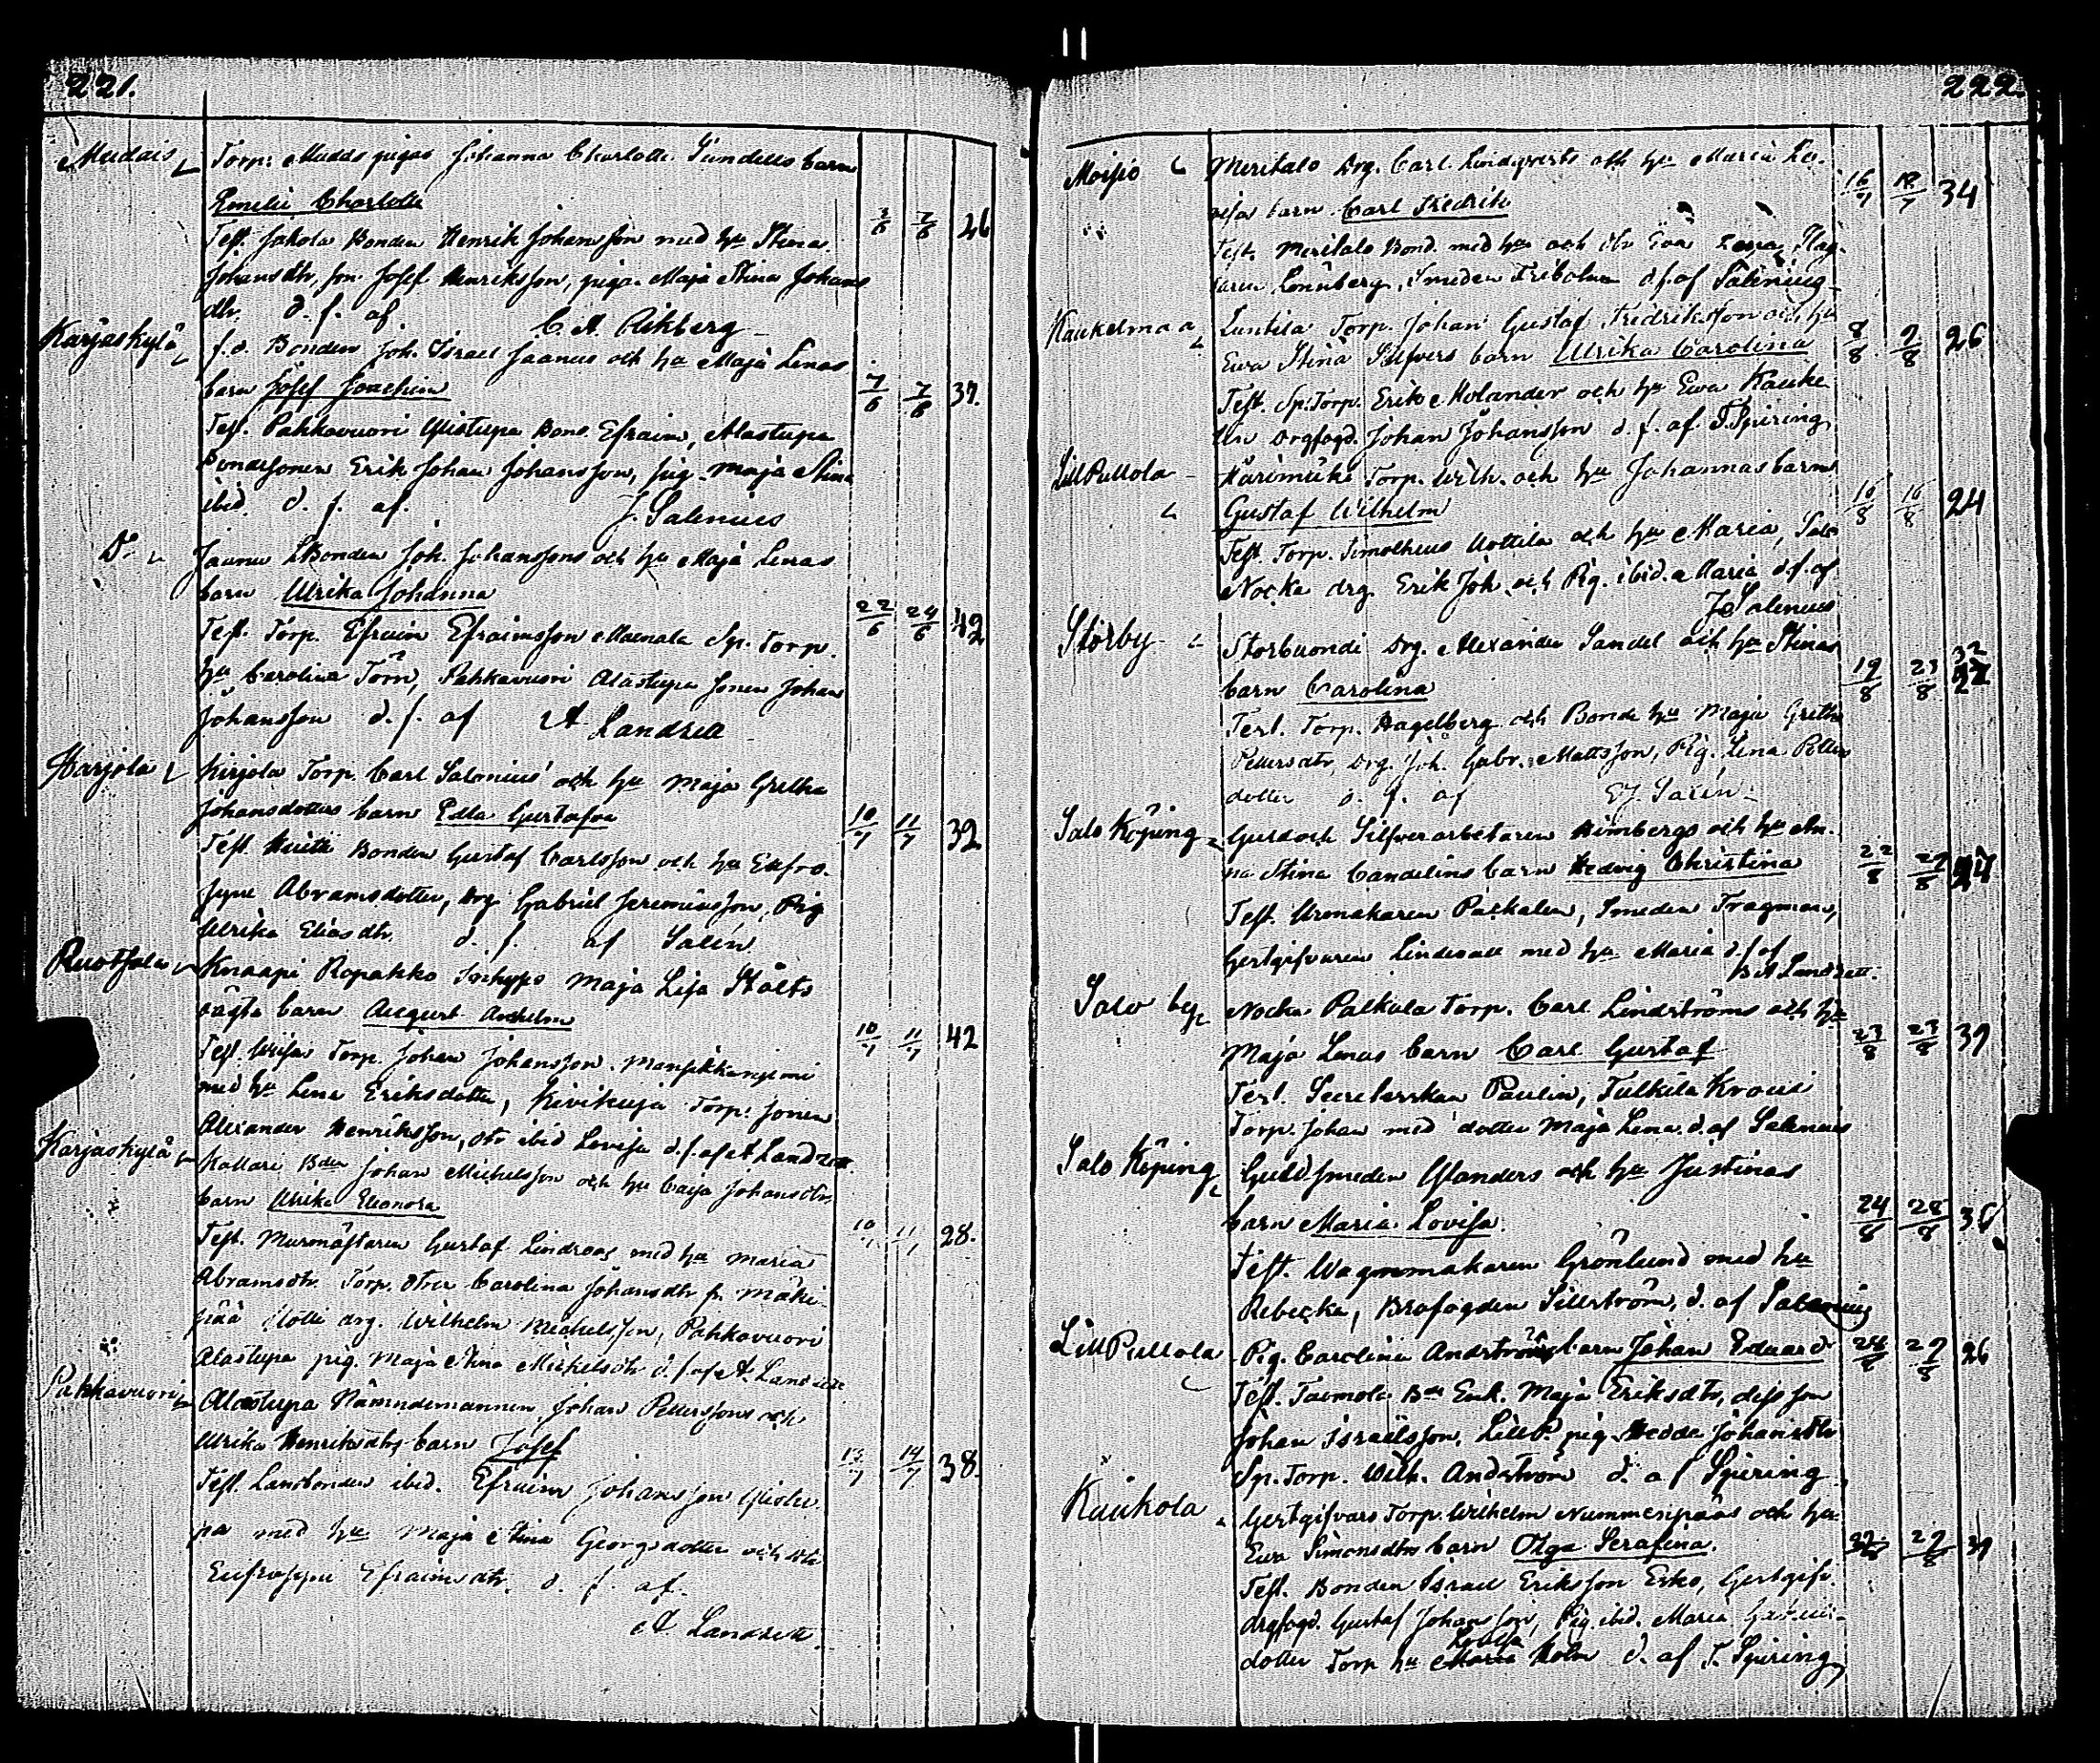 221.
Mudais Torp: Mudds pigas Johanna Charlotta Sundells barn
Emelie Charlotta
2/6 7/6 26
Test. Jakola Bonden Henrik Johansson med hu Stina
Johansdtr, son Josef Henriksson, piga Maja Stina Johans
dtr. d. f. af C. A. Aihberg
Karjaskylä f.d. Bonden Joh. Israel Jaanus och hu Maja Lenas
barn Josef Joachim
7/6 7/6 37.
Test. Pahkavuori Ylistupa Bond. Efraim, Alastupa
Bondesonen Erik Johan Johansson, pig. Maja Stina
ibid. d. f. af. J. Salenius
Do Jaanu LBonden Joh. Johanssons och hu Maja Lenas
barn Ulrika Johanna
22/6 24/6 42
Test. Torp. Efraim Efraimsson Sp. Torp.
hu Carolina Törn, Pahkavuori Alastupa sonen Johan
Johansson d. f. af A Landzett
Karjola Torp. Carl Salonius och hu Maja Gretha
Johansdotters barn Edla Gustafva
10/7 11/7 32
Test. Bonden Gustaf Carlsson och hu Eufro-
syne Abramsdotter, drg Gabriel Jeremiasson, Pig
Ulrika Eliasdtr. d. f. af Salin
Knaapi Ropakko Maja Lisa Stålts
oägta barn August Anshelm
10/7 11/7 42
Test. Torp. Johan Johansson
med hu Lena Eriksdotter, Kivikuja Torp. sonen
Alexander Henriksson, dtr ibid Lovisa d. f. af A Landzett
Karjaskylä Kallari Bden Johan Michelsson och hu Caisa Johansdtrs
barn Ulrika Eleonora
10/7 11/7 28.
Test. Murmästaren Gustaf Lindroos med hu Maria
Abramsdtr. Torp. dtren Carolina Johansdtr fr. Mäki-
pää drg. Wilhelm Michelsson, Pahkavuori
Alastupa pig. Maja Stina Michelsdtr d. f. af A. Landzett
Pahkavuori Alastupa Nämndemannen Johan Petterssons och
Ulrika Henriksdtrs barn Josef
13/7 14/7 38.
Test. Landbonden ibid. Efraim Johansson Ylistu-
pa med hu Maja Stina Georgsdotter och dtr
Eufrosyne Efraimsdtr. d. f. af.
A. Landzett.
222.
Moisio Meritalo Drg. Carl Lindqvists och hu Maria Lo-
visas barn Carl Fredrik
16/7 18/7 34
Test. Meritalo Bond. med hu och dtr Eva
Lönnberg, Smeden d. f. af Salenius
Kaukelmaa Luntila Torp. Johan Gustaf Fredriksson och hu
Ewa Stina Silfvers barn Ulrika Carolina
8/8 9/8 26
Test. Sp. Torp. Erik Molander och hu Ewa Kauke
Drgfogd. Johan Johansson d. f. af F. Spiring
Lill Pullola Harimäki Torp. Wilh. och hu Johannas barn
Gustaf Wilhelm
16/8 16/8 24
Test. Torp. Timotheus Uottila och hu Maria, Salo
Nocka drg. Erik Joh. och Pig. ibid. Maria d. f. af
J. Salenius
Storby Storbuondi Drg. Alexander Sandel och hu Stinas
barn Carolina
19/8 23/8 32
Test. Torp. Hagelberg och Bonde hu Maja Gretha
Pettersdtr, Drg. Joh. Gabr. Mattsson, Pig. Lena Petters
dotter d. f. af Salin
Salo Köping Guld och Silfverarbetaren Bimbergs och hu An-
na Stina Candelins barn Hedvig Christina
22/8 27/8
Test. Urmakaren Paekalen, Smeden Tragman,
Gestgifvaren Lindevall med hu Maria d. f. af
Landzett.
Salo by Nocka Palkula Torp. Carl Lindströms och hu
Maja Lenas barn Carl Gustaf
23/8 23/8 39
Test. Paulin, Tulkila Krousi
Torp. Johan med dotter Maja Lena. d. af Salenius
Salo Köping Guldsmeden Glanders och hu Justinas
barn Maria Lovisa.
24/8 28/8
Test. Wagnmakaren Grönlund med hu
Rebecka, Brofogden Sillström, d. af Salenius
Lill Pullola Pig. Carolina Andströms barn Johan Eduard
24/8 27/8 26
Test. Tavmola Bde Enk. Maja Eriksdtr, dess son
Johan Israelsson, Lill P. pig. Hedda Johansdtr
Sp. Torp. Wilh. Andström d. af Spiring
Kaukola Gestgifvars Torp. Wilhelm Nummenpääs och hu
Ewa Simonsdtrs barn Olga Serafina.
27/8 39
Test. Bonden Israel Eriksson Esko, Gestgifv.
drgfogd. Gustaf Johansson, Pig ibid. Maria
dotter Torp hu Lovisa Holm d. af F. Spiring